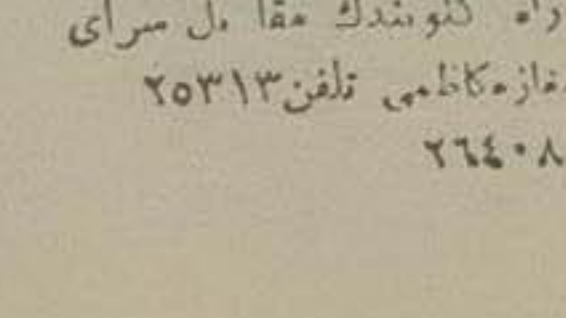 راه کلوبندك مقابل سرای
مغازه کاظمی تلفن ۲۵۳۱۳
۲٦٤۰۸